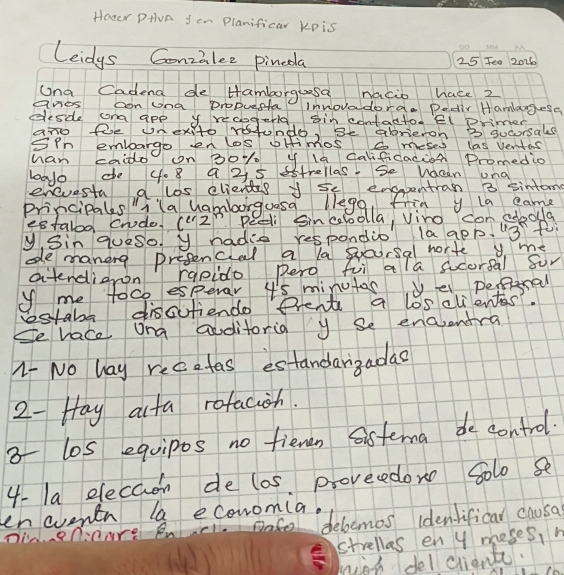 Hacer PHVA y en Planificar KPIS
Leidys González Pineda
DD MM AA
25 Feb 2026
Una Cadena de Hamborguesa nacio hace 2
años con una propuesta innovadora. Pedir Hamburguesa
desde una app y recogerla sin contacto. El Primer
año fue un exito rotundo, se abrieron 3 sucursales
Sin embargo en los ultimos 6 meses las ventas
han caido un 30% y la calificación Promedio
bajo de 4.8 a 2,5 estrellas. Se hacen una
encuesta a los clientes y se encuentran 3 sintoma
principales "1 la hamborguesa llego fria y la carne
estaba cruda. ("2" Pedi sin cebolla, vino con cebolla
y sin queso. y nadie respondio la app. "3 fui
de manera presencial a la sucursal norte y me
atendieron rapido pero fui a la sucorsal sur
y me toco esperar 45 minutos y el personal
estaba discutiendo frente a los clientes.
Se hace una auditoria y se encuentra
1- No hay recetas estandarizadas
2- Hay alta rotación.
3 los equipos no tienen sistema de control.
4- la elección de los proveedores solo se
en cuenta la economia.
debemos identificar causa
strellas en 4 meses,
del cliente.